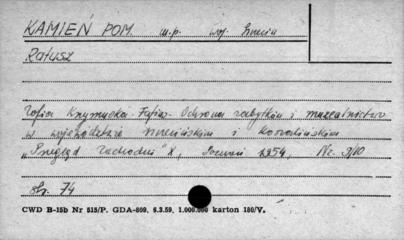 KAMIEŃ POM. m.p. woj. Szczecin
Ratusz
Zofia Krzymuska-Fafius. Ochrona zabytków i muzealnictwo
w województwie szczecińskim i koszalińskim
„Przegląd Zachodni" X, Poznań 1954, Nr. 9/10
str. 74
CWD B-15b Nr 515/P. GDA-809. 6.3.59. 1.000.000 karton 180/V.